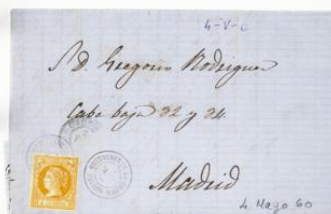 4-V-6
S D. Gregorio Rodriguez
Caba baja 32 y 34.
Madrid
4 Mayo 60